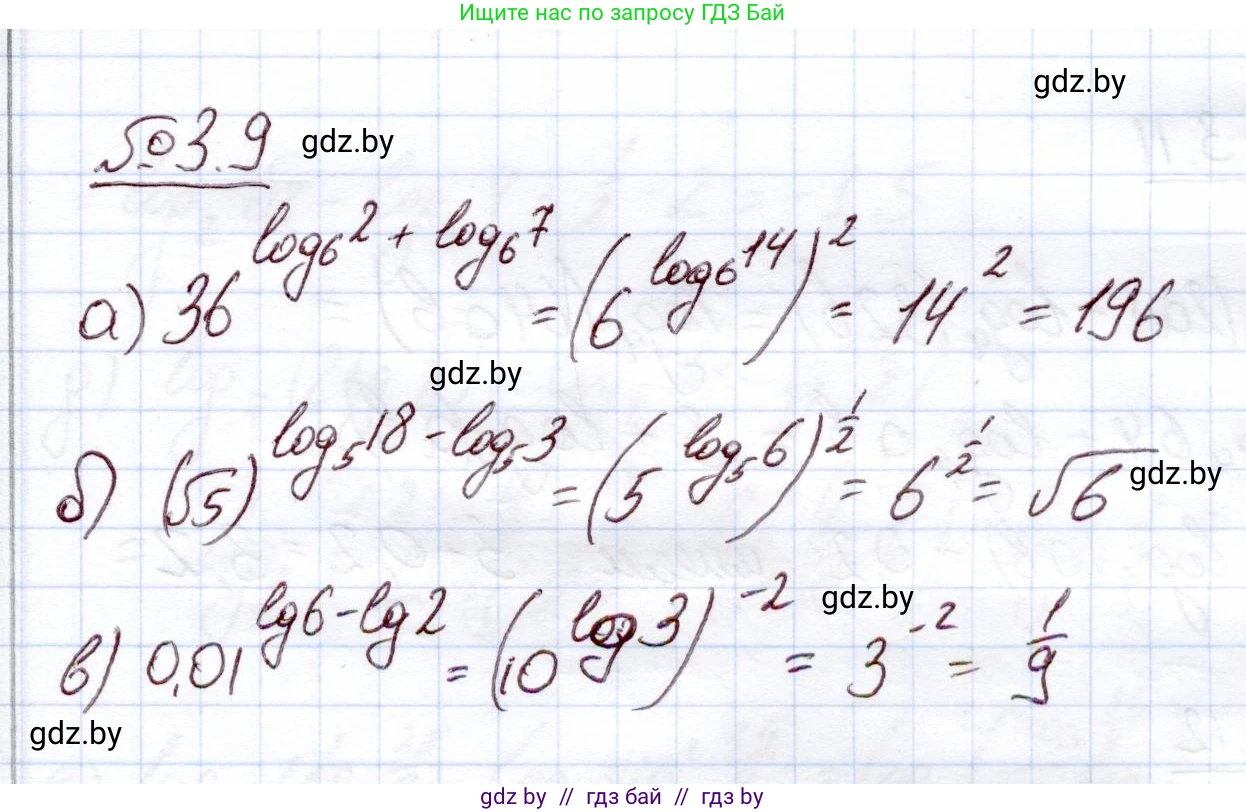 Ищите нас по запросу ГДЗ Бай
gdz.by
№3.9 gdz.by
а) 36^(log₆2 + log₆7) = (6^(log₆14))² = 14² = 196
gdz.by
б) (√5)^(log₅18 - log₅3) = (5^(log₅6))^(1/2) = 6^(1/2) = √6 gdz.by
в) 0,01^(lg6 - lg2) = (10^(log3))^(-2) = 3^(-2) = 1/9 gdz.by
gdz.by
gdz.by // гдз бай // гдз by